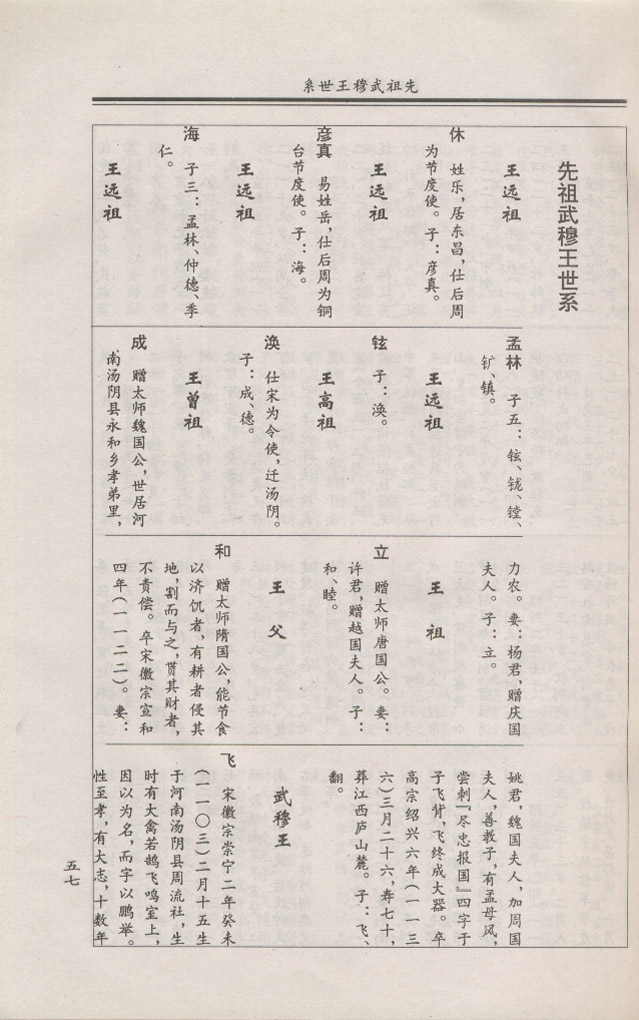 先祖武穆王世系
先祖武穆王世系
王远祖
休　姓乐，居东昌，仕后周
为节度使。子：彦真。
王远祖
彦真　易姓岳，仕后周为铜
台节度使。子：海。
王远祖
海　子三：孟林、仲德、季
仁。
王远祖
孟林　子五：铉、铣、镗、
钌、镇。
王远祖
铉　子：涣。
王高祖
涣　仕宋为令使，迁汤阴。
子：成、德。
王曾祖
成　赠太师魏国公，世居河
南汤阴县永和乡孝弟里，
力农。妻：杨君，赠庆国
夫人。子：立。
王　祖
立　赠太师唐国公。妻：
许君，赠越国夫人。子：
和、睦。
王　父
和　赠太师隋国公，能节食
以济饥者，有耕者侵其
地，割而与之，贳其财者，
不责偿。卒宋徽宗宣和
四年（一一二二）。妻：
姚君，魏国夫人，加周国
夫人，善教子，有孟母风，
尝刺『尽忠报国』四字于
子飞背，飞终成大器。卒
高宗绍兴六年（一一三
六）三月二十六，寿七十，
葬江西庐山麓。子：飞、
翻。
武穆王
飞　宋徽宗崇宁二年癸未
（一一〇三）二月十五生
于河南汤阴县周流社，生
时有大禽若鹄飞鸣室上，
因以为名，而字以鹏举。
性至孝，有大志，十数年
五七